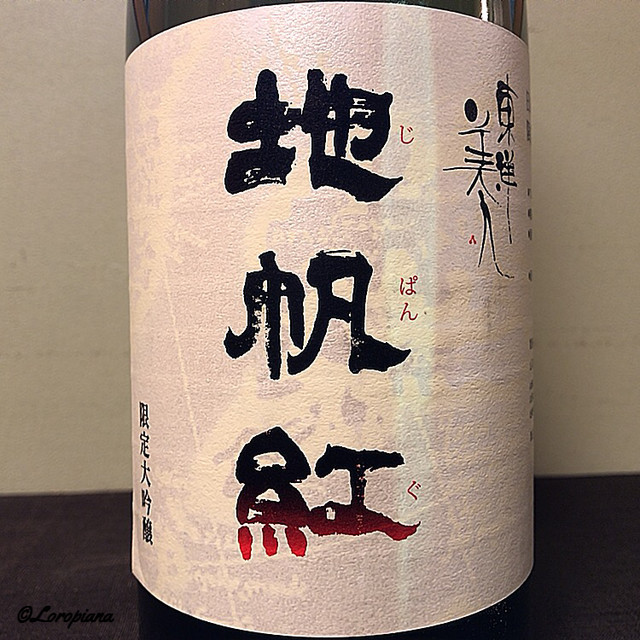 東洋美人
地帆紅
じ
ぱん
ぐ
限定大吟醸
©Loropiana